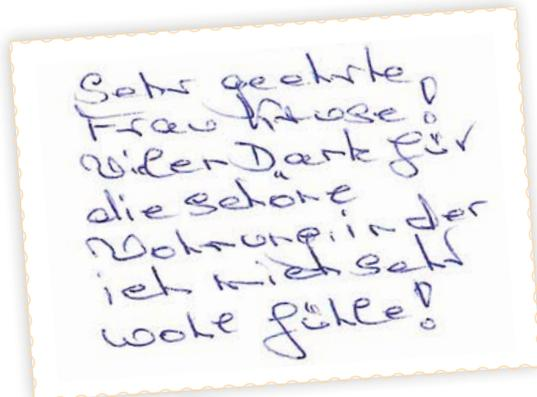 Sehr geehrte
Frau Kruse!
Vielen Dank für
die schöne
Wohnung, in der
ich mich sehr
wohl fühle!